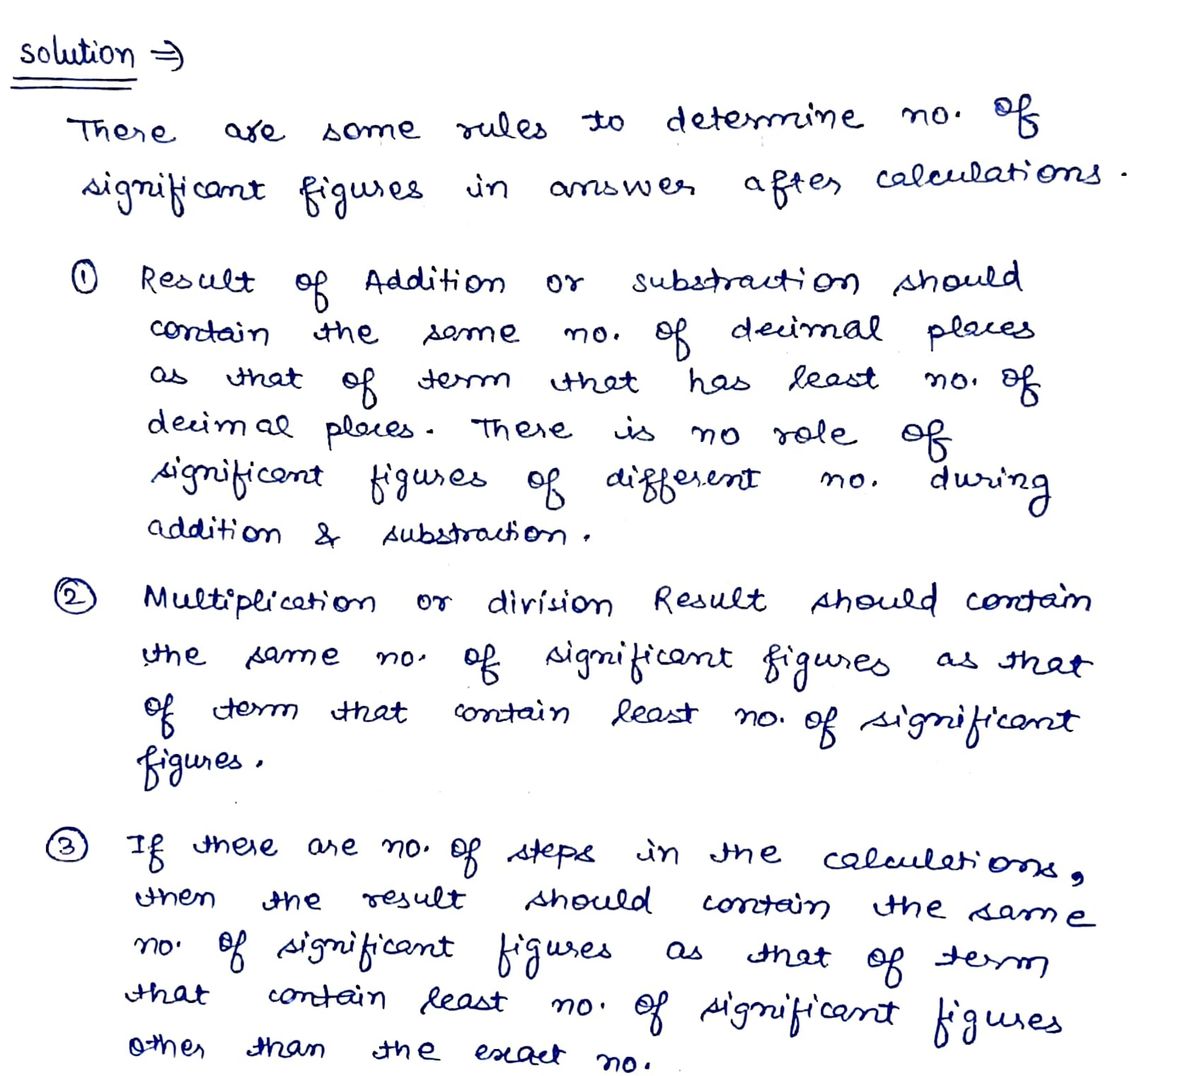 solution ⇒
There are some rules to determine no. of
significant figures in answer after calculations.
① Result of Addition or substraction should
contain the same no. of decimal places
as that of term that has least no. of
decimal places. There is no role of
significant figures of different no. during
addition & substraction.
② Multiplication or division Result should contain
the same no. of significant figures as that
of term that contain least no. of significant
figures.
③ If there are no. of steps in the calculations,
then the result should contain the same
no. of significant figures as that of term
that contain least no. of significant figures
other than the exact no.